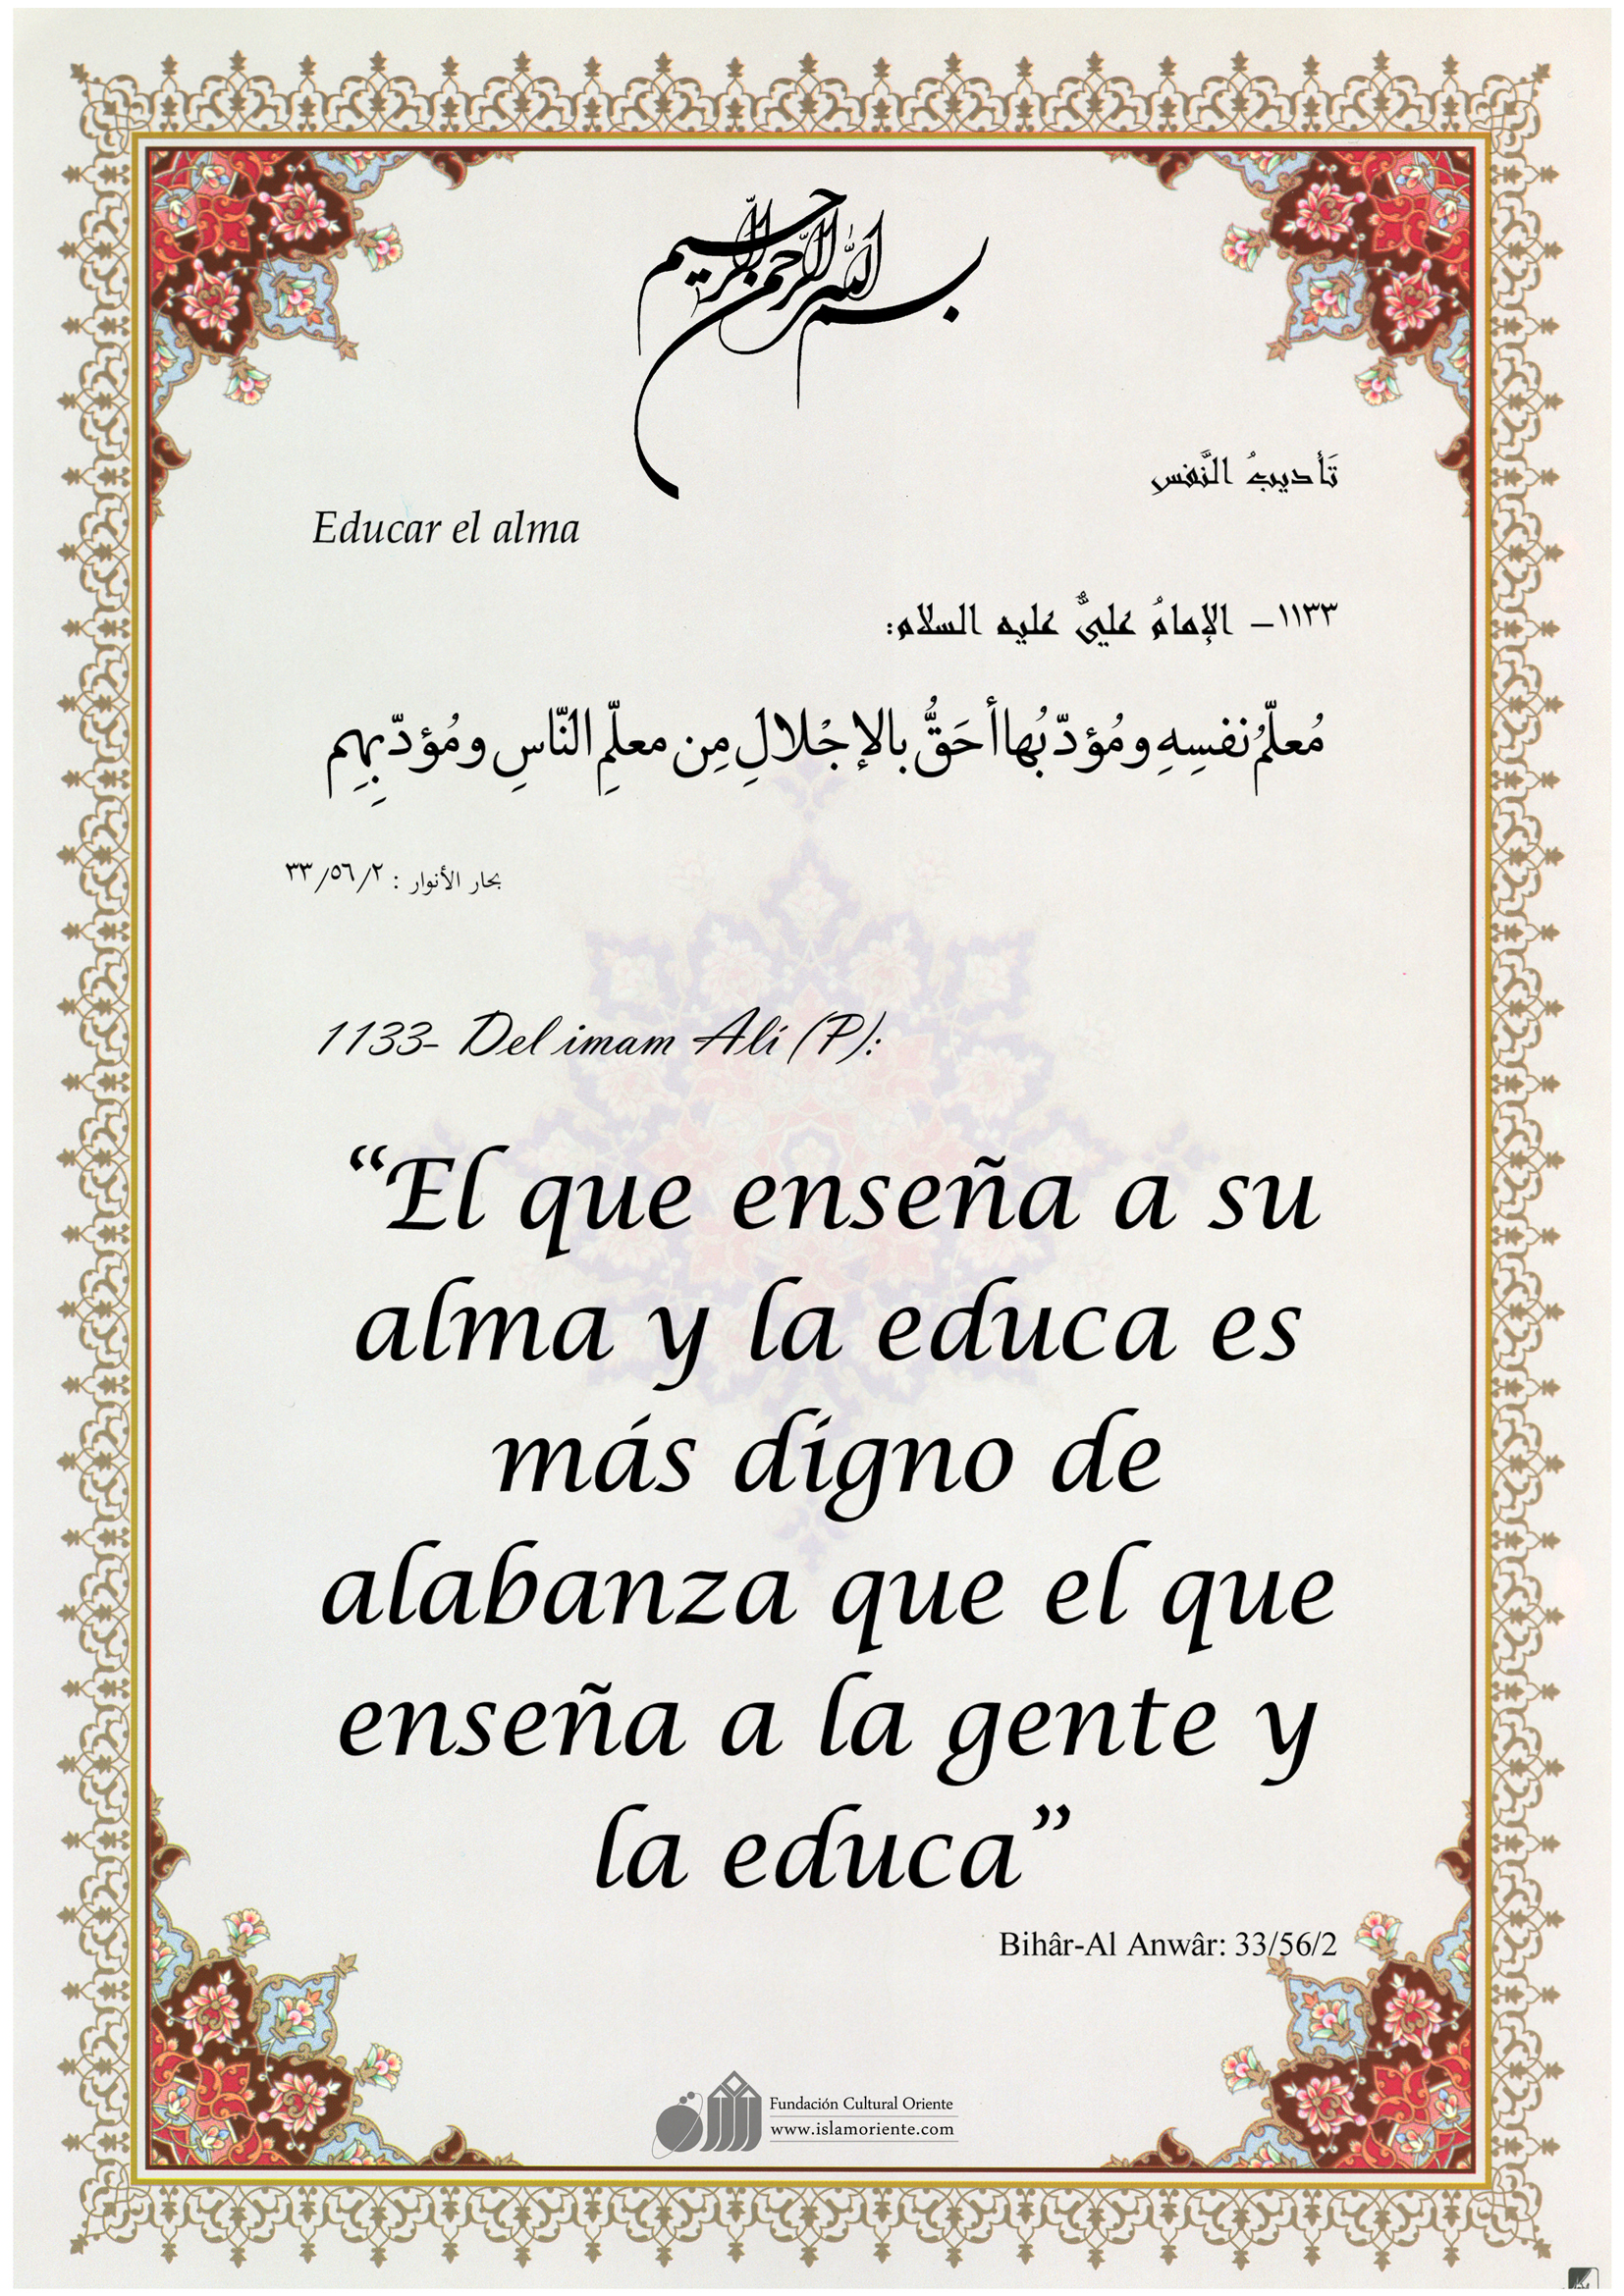 بسم الله الرحمن الرحيم
تَأديبُ النَّفس
Educar el alma
١١٣٣– الإمامُ عليٌّ عليه السلام:
مُعلّمُ نفسِهِ ومُؤدّبُها أحَقُّ بالإجْلالِ مِن معلّمِ النّاسِ ومُؤدّبِهِم
بحار الأنوار : ٣٣/٥٦/٢
1133- Del imam Ali (P):
“El que enseña a su
alma y la educa es
más digno de
alabanza que el que
enseña a la gente y
la educa”
Bihâr-Al Anwâr: 33/56/2
Fundación Cultural Oriente
www.islamoriente.com